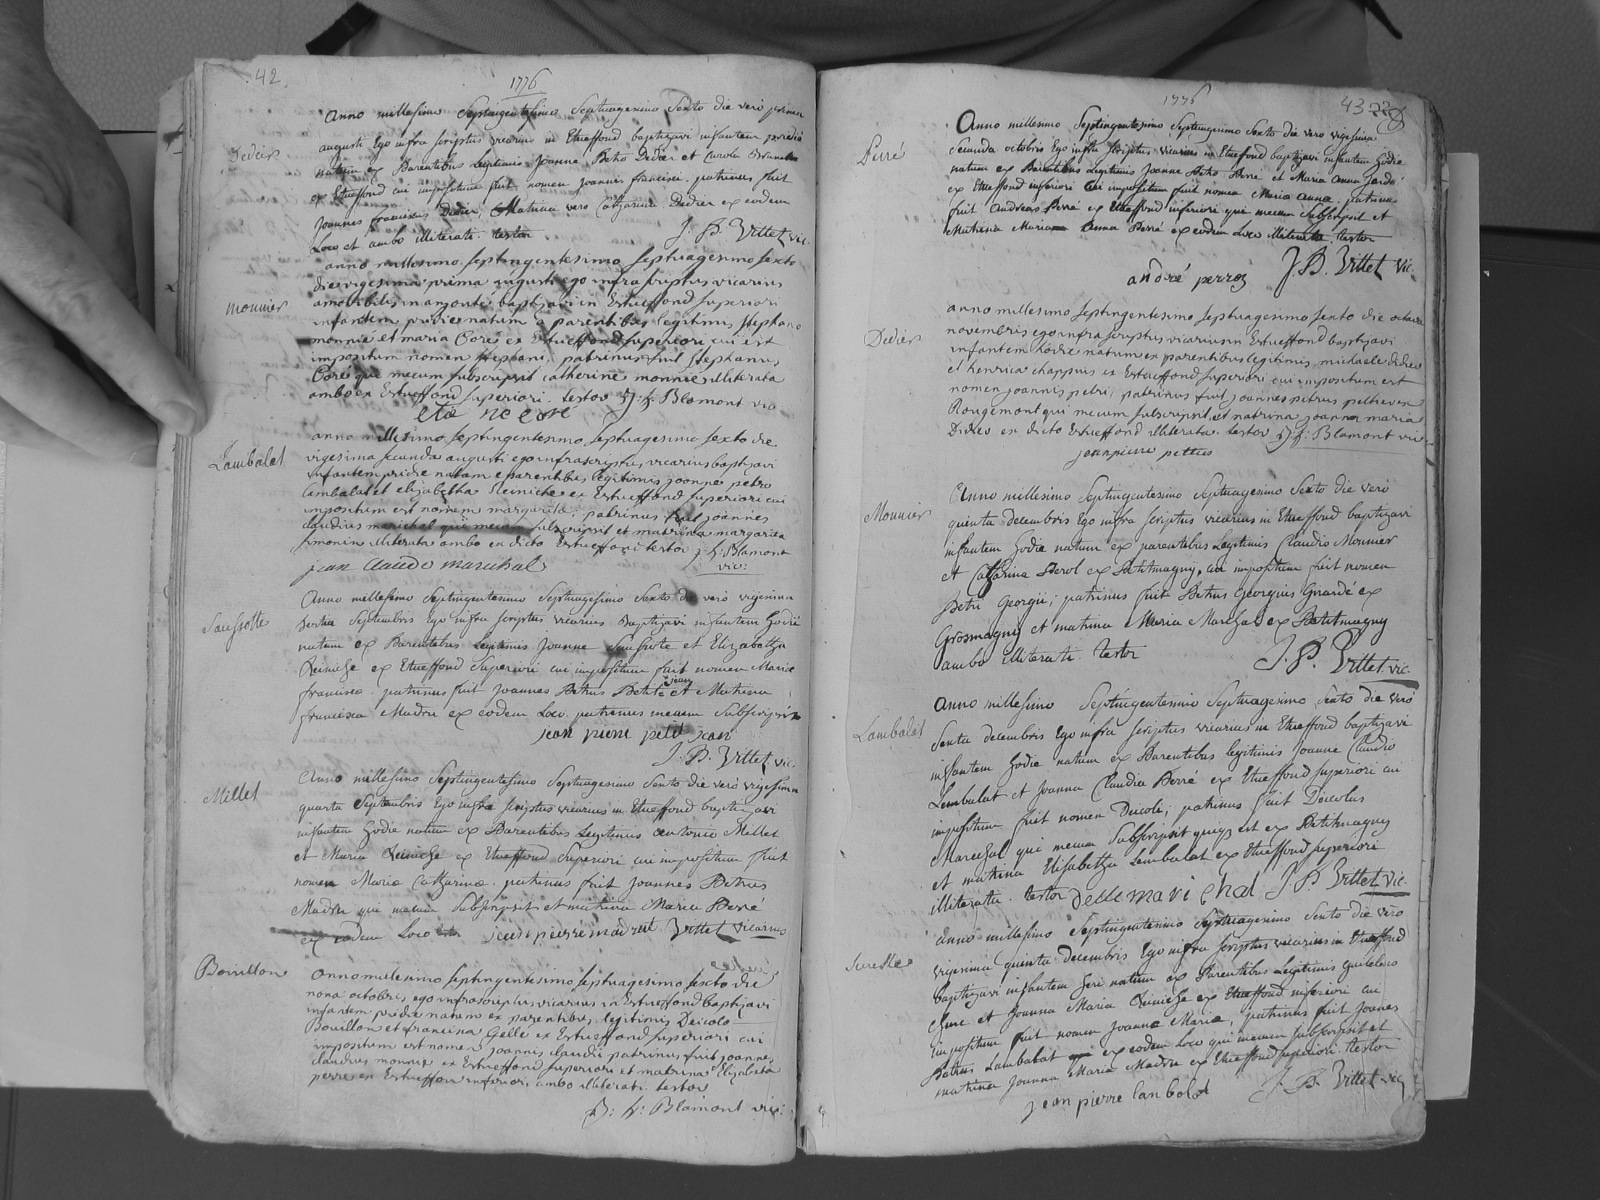 42
1776
Anno millesimo Septingentesimo Septuagesimo Sexto die vero
augusti Ego infra scriptus vicarius in Etueffond baptizavi infantem pridie
Didier
natum ex Parentibus Legitimis Joanne Petro Didier et
ex Etueffond cui impositum fuit nomen Joannis francisci. patrinus fuit
Joannes franciscus Didier, Matrina vero Catharina Didier ex eodem
Loco et ambo illiterati. testor J. B. Vittet vic.
anno millesimo septingentesimo septuagesimo sexto
die vigesima prima augusti ego infra scriptus vicarius
monnier
baptizavi in Estueffond superiori
infantem pridie natum a parentibus legitimis stephano
monnié et maria Coré ex Estueffond superiori cui est
impositum nomen stephani. patrinus fuit stephanus
Coré qui mecum subscripsit catherine monnié illiterata
ambo ex Estueffond superiori. testor J: h: Blamont vic
anno millesimo septingentesimo septuagesimo sexto die
Lambalat
vigesima secunda augusti ego infrascriptus vicarius baptizavi
infantem pridie natam e parentibus legitimis joanne petro
lambalat et elizabetha Reiniche ex Estueffond superiori cui
impositum est nomen margarita; patrinus fuit joannes
claudius marichal qui mecum subscripsit et matrina margarita
simonin illiterata ambo ex dicto Estueffond testor J: h: Blamont
jean claudo marichal vic:
Anno millesimo Septingentesimo Septuagesimo Sexto die vero vigesima
tertia Septembris Ego infra scriptus vicarius Baptizavi infantem hodie
natum ex Parentibus Legitimis Joanne et Elizabetha
Reiniche ex Etueffond Superiori cui impositum fuit nomen Maria
francisca. patrinus fuit Joannes Petrus Petit jean et Matrina
francisca Madru ex eodem Loco. patrinus mecum Subscripsit
jean pierre petit jean
J. B. Vittet vic.
Anno millesimo Septingentesimo Septuagesimo Sexto die vero vigesima
Millet
quarta Septembris Ego infra scriptus vicarius in Etueffond baptizavi
infantem hodie natum ex Parentibus Legitimis antonio Millet
et Maria Reiniche ex Etueffond Superiori cui impositum fuit
nomen Maria Catharina. patrinus fuit Joannes Petrus
Madru qui mecum Subscripsit et matrina Maria Perré
ex eodem Loco testor Vittet vicarius
Bouillon
anno millesimo septingentesimo septuagesimo sexto die
nona octobris, ego infrascriptus vicarius in Estueffond baptizavi
infantem pridie natum ex parentibus legitimis Deicolo
Bouillon et francisca Gelle ex Estueffond superiori cui
impositum est nomen joannis claudii patrinus fuit joannes
claudius monnié ex Estueffond superiori et matrina Elizabeta
perré ex Estueffon inferiori ambo illiterati. testor
J: h: Blamont vic:
1776
43
Anno millesimo Septingentesimo Septuagesimo Sexto die vero vigesima
Perré
Secunda octobris Ego infra scriptus vicarius in Etueffond baptizavi infantem hodie
natum ex Parentibus Legitimis Joanne Petro Perré et Maria Anna
ex Etueffond inferiori cui impositum fuit nomen Maria anna. patrinus
fuit Andreas Perré ex Etueffond inferiori qui mecum Subscripsit et
Matrina Maria Anna Perré ex eodem Loco illiterata. testor
J. B. Vittet vic.
andré perroz
anno millesimo septingentesimo septuagesimo sexto die octava
Didier
novembris ego infra scriptus vicarius in Estueffond baptizavi
infantem hodie natum ex parentibus legitimis michaele didier
et henrica chappuis ex Estueffond superiori cui impositum est
nomen joannis petri; patrinus fuit joannes petrus peltier ex
Rougemont qui mecum subscripsit, et matrina joanna maria
Didier ex dicto Estueffond illiterata. testor J: h: Blamont vic
jean pierre
Anno millesimo Septingentesimo Septuagesimo Sexto die vero
Monnier
quinta decembris Ego infra scriptus vicarius in Etueffond baptizavi
infantem hodie natum ex parentibus Legitimis Claudio Monnier
et Catharina Perol ex Petitmagny, cui impositum fuit nomen
Petri Georgii; patrinus fuit Petrus Georgius Girardé ex
Grosmagny et matrina Maria Marchal ex Petitmagny
ambo illiterati. testor J. B. Vittet vic.
anno millesimo Septingentesimo Septuagesimo Sexto die vero
Lambalat
Sexta decembris Ego infra scriptus vicarius in Etueffond baptizavi
infantem hodie natum ex Parentibus legitimis Joanne Claudio
Lambalat et Joanna Claudia Perré ex Etueffond superiori cui
impositum fuit nomen Deicoli; patrinus fuit Deicolus
Marechal qui mecum Subscripsit quique est ex Petitmagny
et matrina Elisabetha Lambalat ex Etueffond superiori
illiterata. testor delle marichal J. B. Vittet vic.
anno millesimo Septingentesimo Septuagesimo Sexto die vero
vigesima quinta decembris Ego infra scriptus vicarius in Etueffond
baptizavi infantem heri natum ex Parentibus Legitimis
et Joanna Maria Reiniche ex Etueffond inferiori cui
impositum fuit nomen Joanna Maria; patrinus fuit Joannes
Petrus Lambalat ex eodem Loco qui mecum Subscripsit et
matrina Joanna Maria Madru ex Etueffond superiori. testor
J. B. Vittet vic.
jean pierre lanbolat